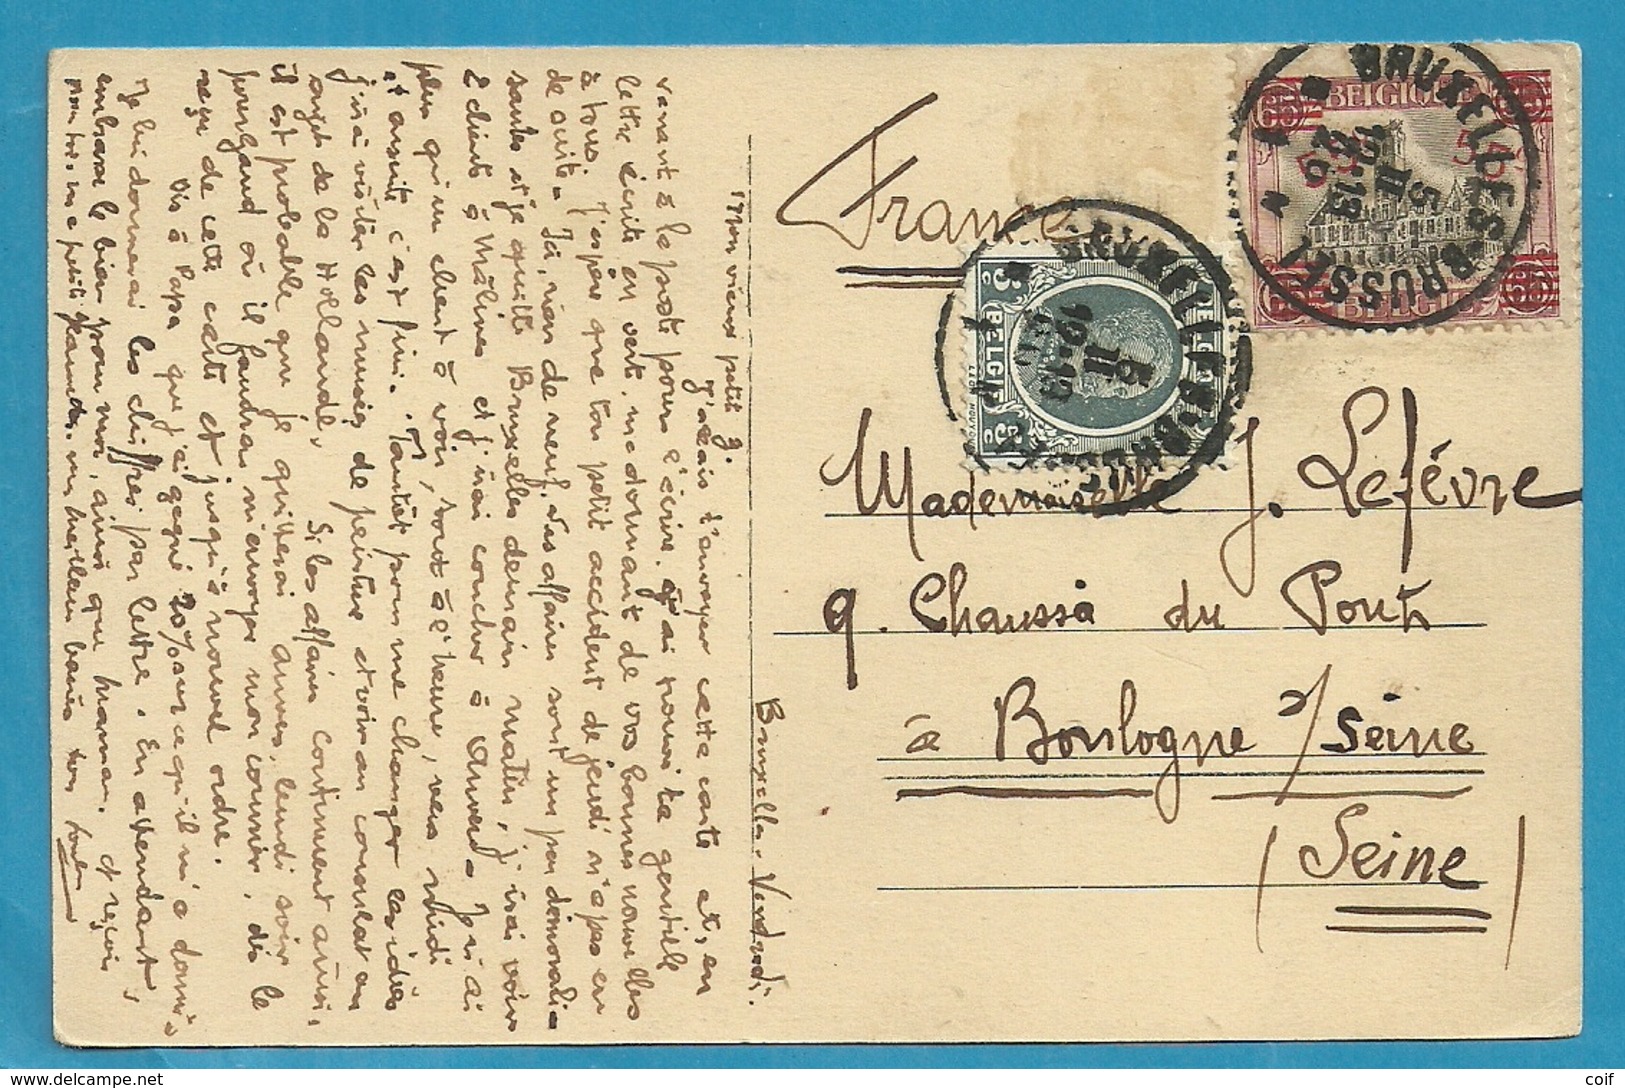 France
BRUXELLES BRUSSEL
5
II
12-13
26
1
BELGIQUE
BELGIË
65
55
BRUXELLES BRUSSEL
5
II
12-13
1
BELGIË
5c
5c
Mademoiselle J. Lefèvre
9. Chaussé du Pont
à Boulogne s/ Seine
(Seine)
Bruxelles. Vendredi.
Mon vieux petit J.
J'allais t'envoyer cette carte et, en
venant à la poste pour l'écrire, j'ai trouvé ta gentille
lettre écrite en vert, me donnant de vos bonnes nouvelles
à tous. J'espère que ton petit accident de jeudi n'a pas eu
de suite. Ici, rien de neuf. Les affaires sont un peu
et je quitte Bruxelles demain matin, j'irai voir
2 clients à Malines et j'irai coucher à Anvers. Je n'ai
plus qu'un client à voir, tout à l'heure, vers midi
et ensuite c'est fini. Tantôt pour me changer les idées
j'irai visiter les musées de peinture et voir au consulat au
sujet de la Hollande. Si les affaires continuent ainsi,
il est probable que je quitterai Anvers, lundi soir
pour Gand où il faudra m'envoyer mon courrier, dis le
reçu de cette carte et jusqu'à nouvel ordre.
Dis à Papa que j'ai gagné 20% sur ce qu'il m'a donné
Je lui donnerai les chiffres par lettre. En attendant,
embrasse le bien pour moi, ainsi que maman. et reçois
mes meilleurs baisers ton
coif